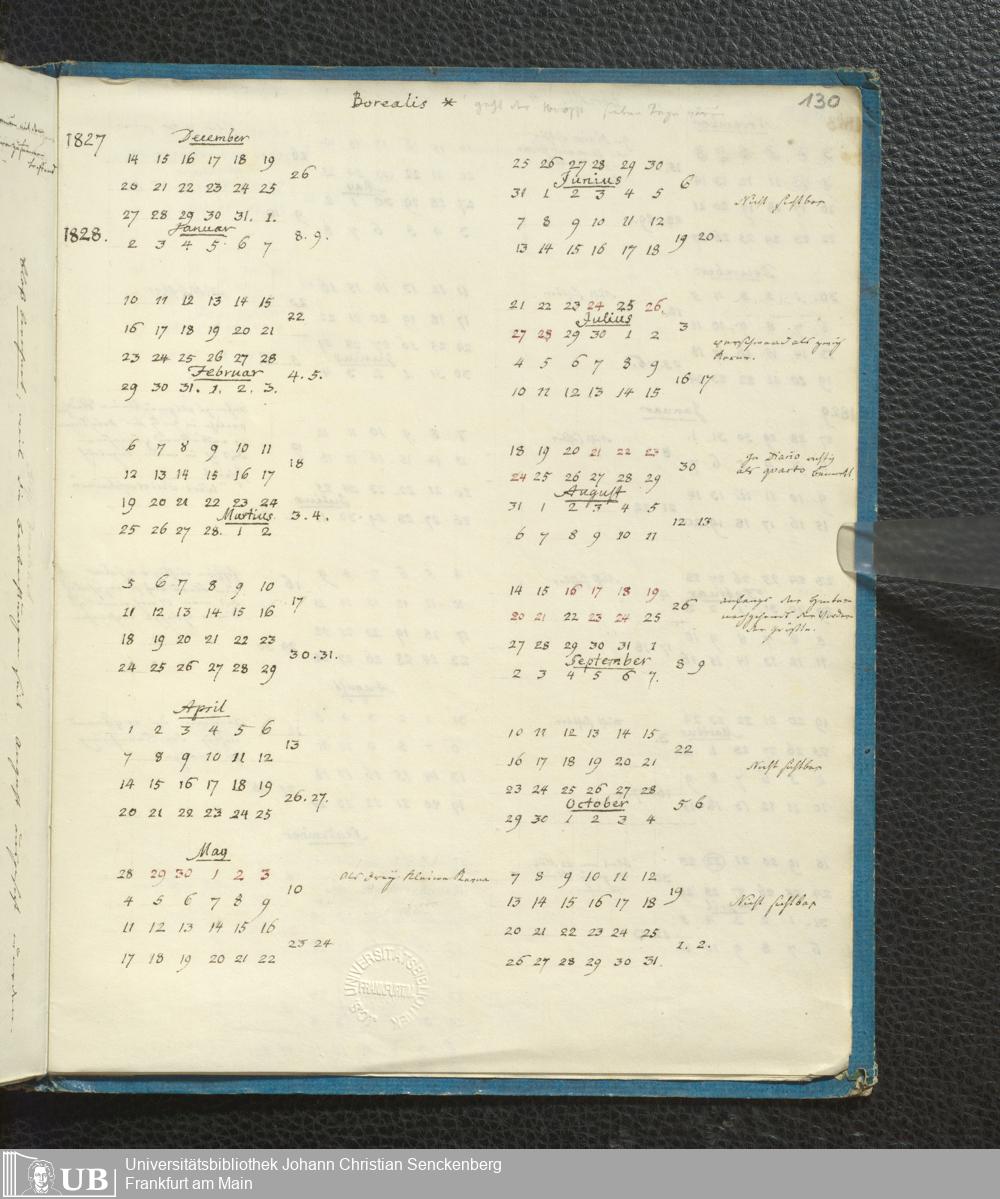 130
Borealis *
1827
December
14 15 16 17 18 19
26
20 21 22 23 24 25
27 28 29 30 31. 1.
1828.
Januar
8. 9.
2 3 4 5 6 7
10 11 12 13 14 15
22
16 17 18 19 20 21
23 24 25 26 27 28
Februar
4. 5.
29 30 31. 1. 2. 3.
6 7 8 9 10 11
18
12 13 14 15 16 17
19 20 21 22 23 24
Martius
3. 4.
25 26 27 28. 1 2
5 6 7 8 9 10
17
11 12 13 14 15 16
18 19 20 21 22 23
30. 31.
24 25 26 27 28 29
April
1 2 3 4 5 6
13
7 8 9 10 11 12
14 15 16 17 18 19
26. 27.
20 21 22 23 24 25
May
28 29 30 1 2 3
als drey kleine
10
4 5 6 7 8 9
11 12 13 14 15 16
23 24
17 18 19 20 21 22
25 26 27 28 29 30
Junius
6
31 1 2 3 4 5
Nicht sichtbar
7 8 9 10 11 12
19 20
13 14 15 16 17 18
21 22 23 24 25 26
Julius
3
27 28 29 30 1 2
verschwand als
4 5 6 7 8 9
16 17
10 11 12 13 14 15
18 19 20 21 22 23
30
als quarto
24 25 26 27 28 29
August
31 1 2 3 4 5
12 13
6 7 8 9 10 11
14 15 16 17 18 19
26
anfangs der
20 21 22 23 24 25
der größte.
27 28 29 30 31 1
September
8 9
2 3 4 5 6 7.
10 11 12 13 14 15
22
16 17 18 19 20 21
Nicht sichtbar
23 24 25 26 27 28
October
5 6
29 30 1 2 3 4
7 8 9 10 11 12
19
13 14 15 16 17 18
Nicht sichtbar
20 21 22 23 24 25
1. 2.
26 27 28 29 30 31.
UNIVERSITÄTSBIBLIOTHEK
FRANKFURT/M
UB
Universitätsbibliothek Johann Christian Senckenberg
Frankfurt am Main